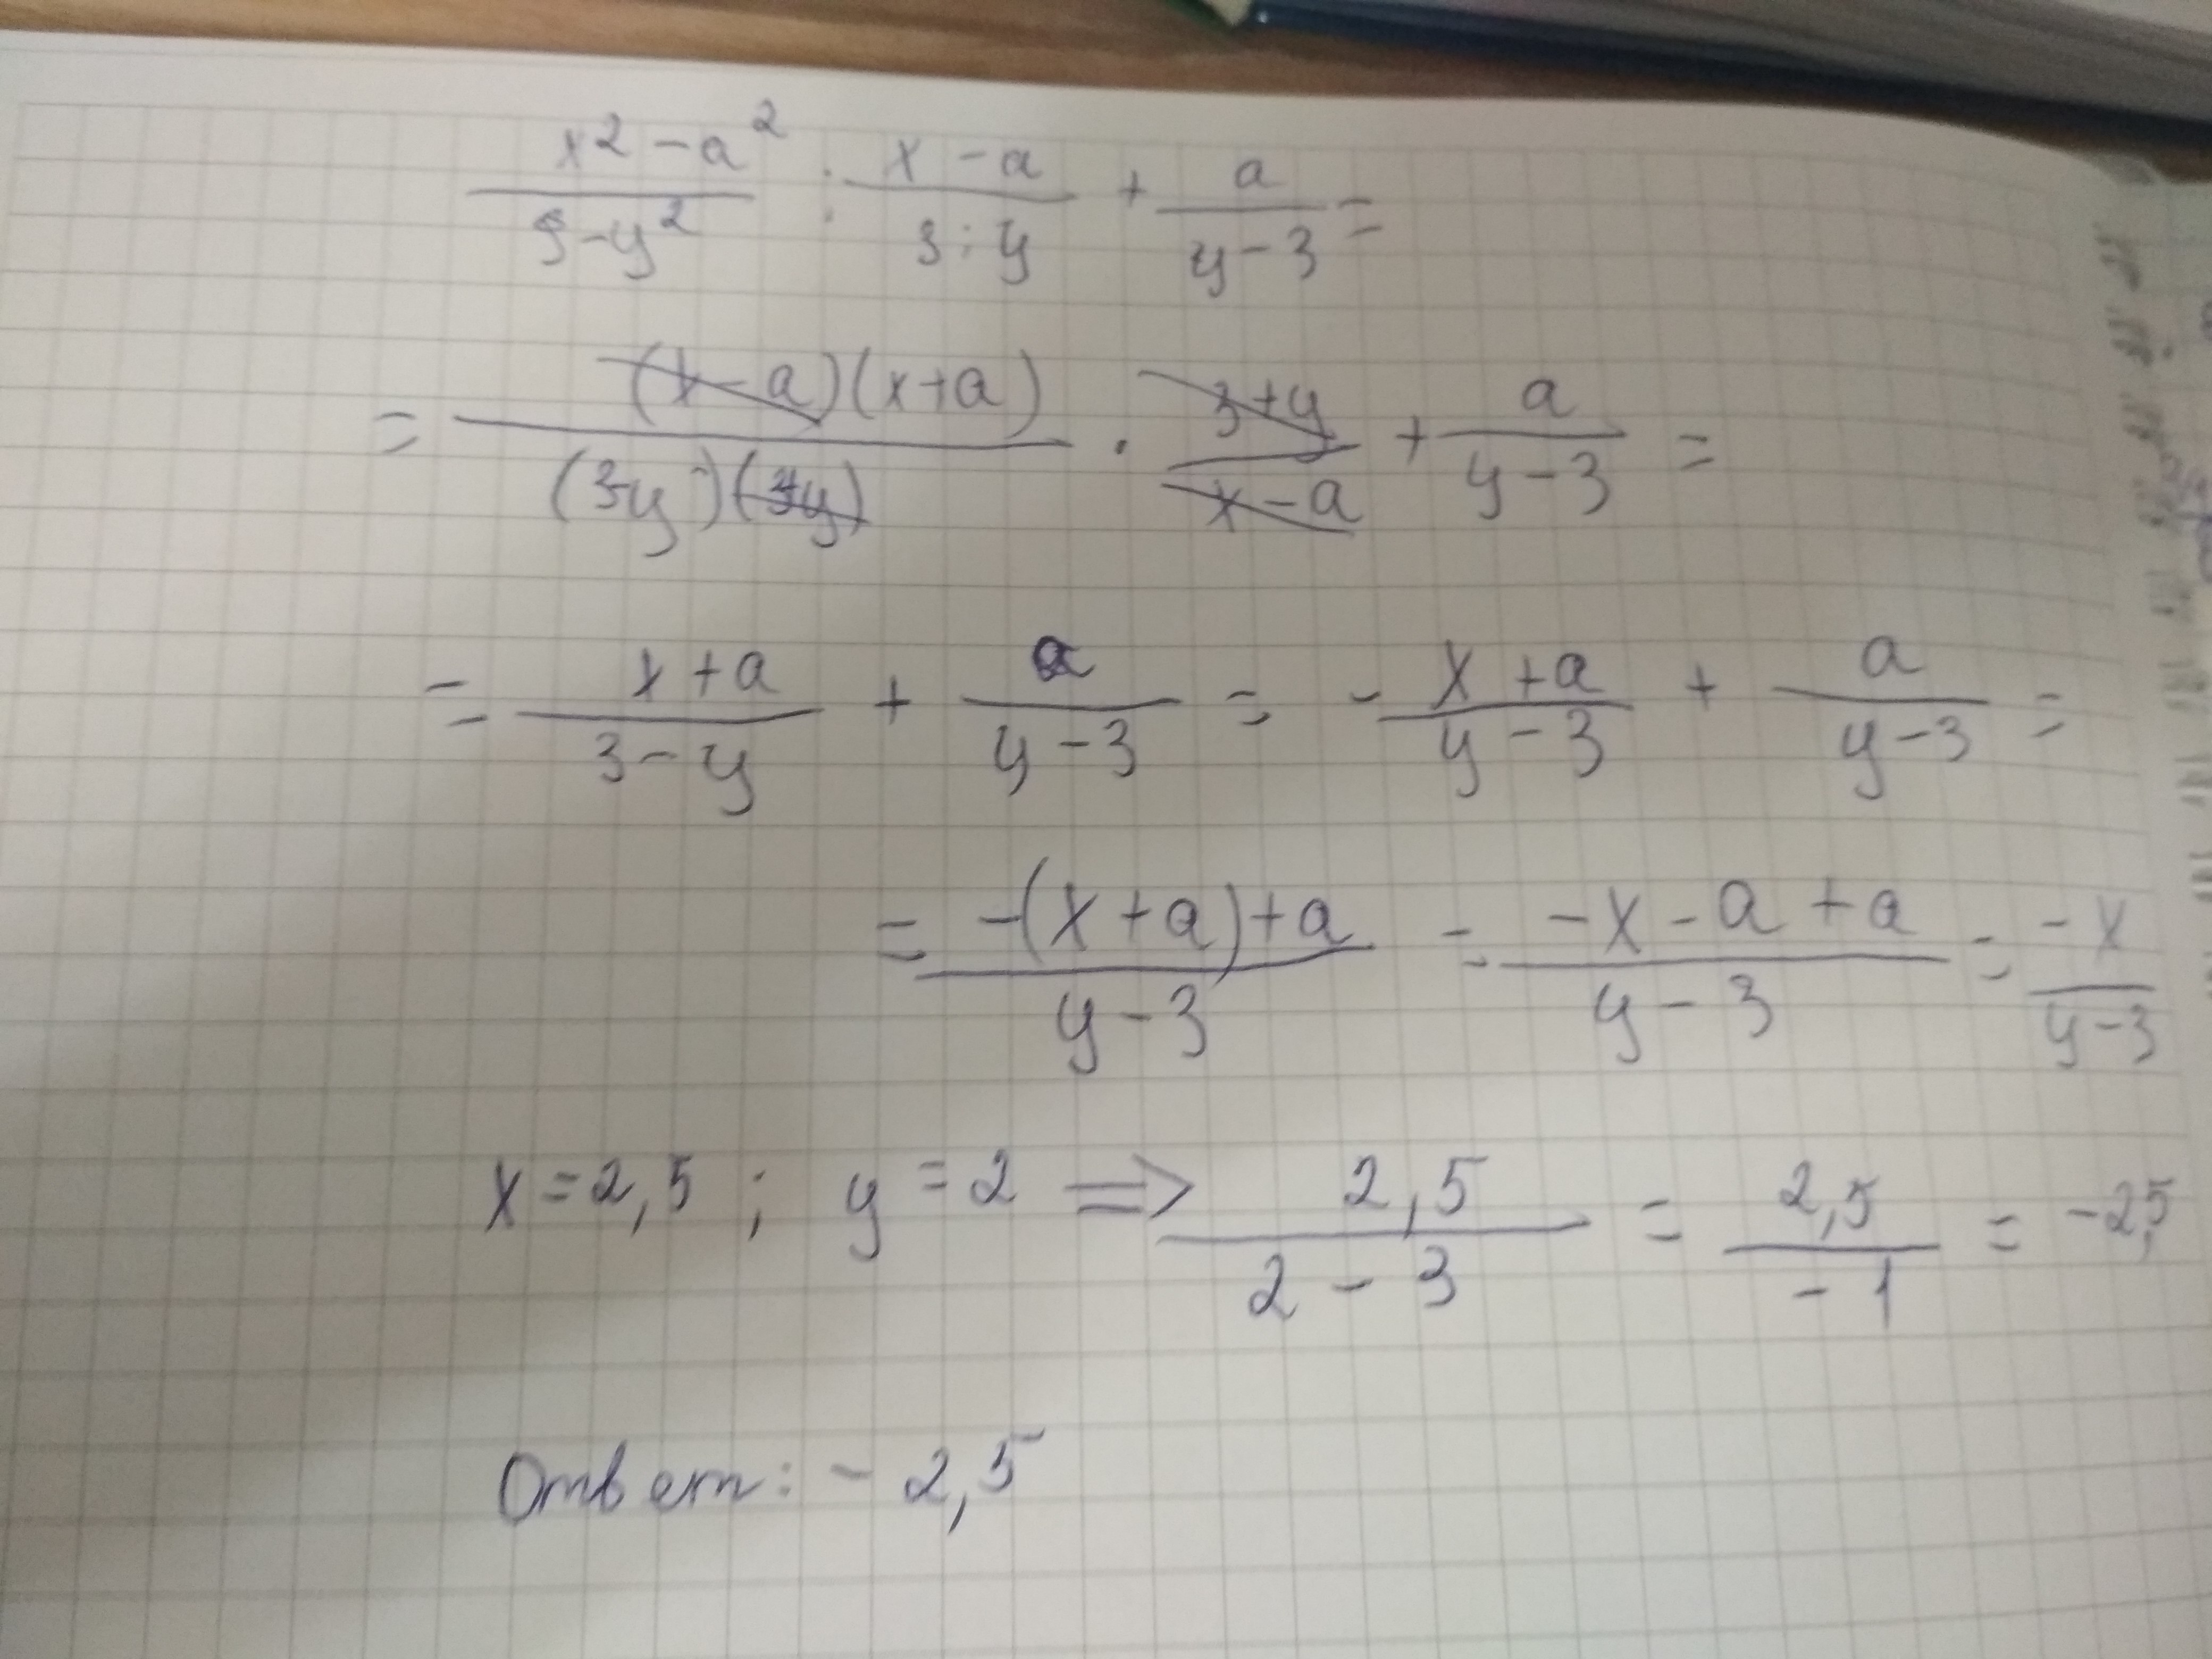 (x² - a²)/(9 - y²) : (x - a)/(3 : y) + a/(y - 3) =
= ((x - a)(x + a))/((3 - y)(3 + y)) · (3 + y)/(x - a) + a/(y - 3) =
= (x + a)/(3 - y) + a/(y - 3) = - (x + a)/(y - 3) + a/(y - 3) =
= (-(x + a) + a)/(y - 3) = (-x - a + a)/(y - 3) = (-x)/(y - 3)
x = 2,5 ; y = 2 ⇒ 2,5/(2 - 3) = 2,5/(-1) = -2,5
Ответ: - 2,5